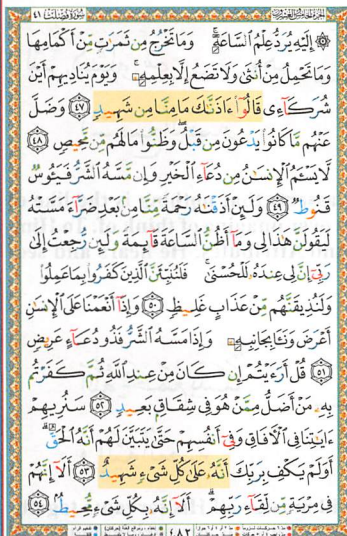 سورة فصلت ٤١
إِلَيْهِ يُرَدُّ عِلْمُ ٱلسَّاعَةِ ۚ وَمَا تَخْرُجُ مِن ثَمَرَٰتٍ مِّنْ أَكْمَامِهَا
وَمَا تَحْمِلُ مِنْ أُنثَىٰ وَلَا تَضَعُ إِلَّا بِعِلْمِهِۦ ۚ وَيَوْمَ يُنَادِيهِمْ أَيْنَ
شُرَكَآءِى قَالُوٓا۟ ءَاذَنَّـٰكَ مَا مِنَّا مِن شَهِيدٍ ٤٧ وَضَلَّ
عَنْهُم مَّا كَانُوا۟ يَدْعُونَ مِن قَبْلُ ۖ وَظَنُّوا۟ مَا لَهُم مِّن مَّحِيصٍ ٤٨
لَّا يَسْـَٔمُ ٱلْإِنسَـٰنُ مِن دُعَآءِ ٱلْخَيْرِ وَإِن مَّسَّهُ ٱلشَّرُّ فَيَـُٔوسٌ
قَنُوطٌ ٤٩ وَلَئِنْ أَذَقْنَـٰهُ رَحْمَةً مِّنَّا مِنۢ بَعْدِ ضَرَّآءَ مَسَّتْهُ
لَيَقُولَنَّ هَـٰذَا لِى وَمَآ أَظُنُّ ٱلسَّاعَةَ قَآئِمَةً وَلَئِن رُّجِعْتُ إِلَىٰ
رَبِّىٓ إِنَّ لِى عِندَهُۥ لَلْحُسْنَىٰ ۚ فَلَنُنَبِّئَنَّ ٱلَّذِينَ كَفَرُوا۟ بِمَا عَمِلُوا۟
وَلَنُذِيقَنَّهُم مِّنْ عَذَابٍ غَلِيظٍ ٥٠ وَإِذَآ أَنْعَمْنَا عَلَى ٱلْإِنسَـٰنِ
أَعْرَضَ وَنَـَٔا بِجَانِبِهِۦ وَإِذَا مَسَّهُ ٱلشَّرُّ فَذُو دُعَآءٍ عَرِيضٍ
٥١ قُلْ أَرَءَيْتُمْ إِن كَانَ مِنْ عِندِ ٱللَّهِ ثُمَّ كَفَرْتُم
بِهِۦ مَنْ أَضَلُّ مِمَّنْ هُوَ فِى شِقَاقٍۭ بَعِيدٍ ٥٢ سَنُرِيهِمْ
ءَايَـٰتِنَا فِى ٱلْـَٔافَاقِ وَفِىٓ أَنفُسِهِمْ حَتَّىٰ يَتَبَيَّنَ لَهُمْ أَنَّهُ ٱلْحَقُّ ۗ
أَوَلَمْ يَكْفِ بِرَبِّكَ أَنَّهُۥ عَلَىٰ كُلِّ شَىْءٍ شَهِيدٌ ٥٣ أَلَآ إِنَّهُمْ
فِى مِرْيَةٍ مِّن لِّقَآءِ رَبِّهِمْ ۗ أَلَآ إِنَّهُۥ بِكُلِّ شَىْءٍ مُّحِيطٌۢ ٥٤
٤٨٢